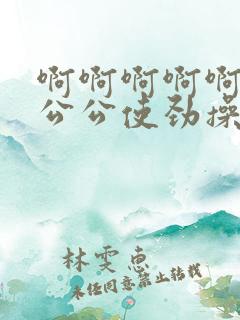 啊啊啊啊啊
公公使劲操
林雯惠
未经同意禁止转载